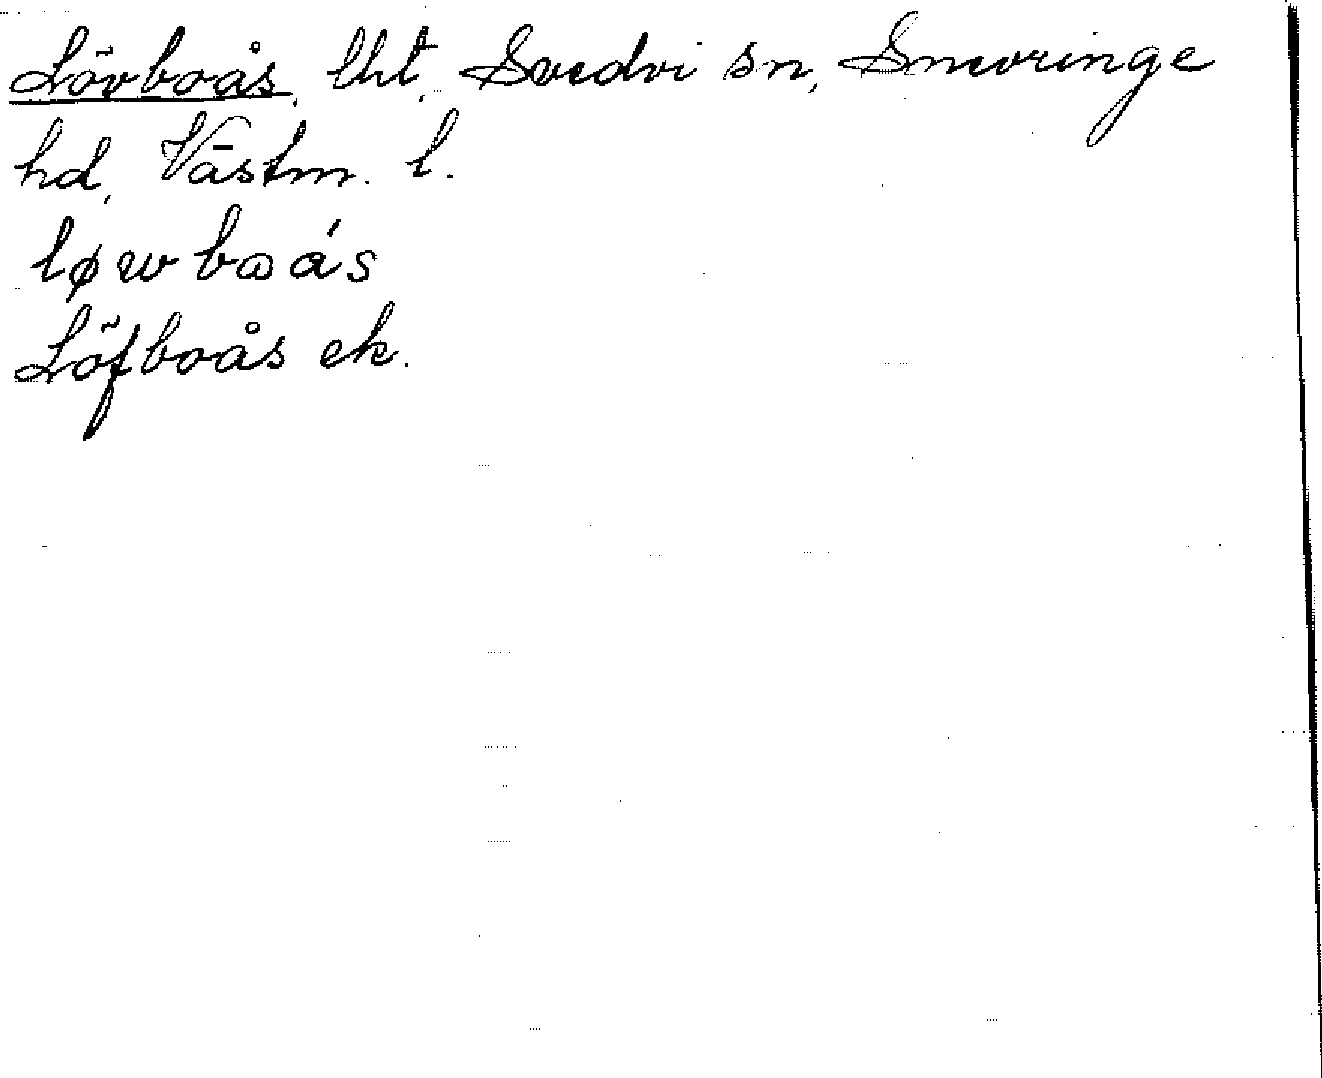 Lövboås, lht, Svedvi sn, Snevringe
hd, Västm. l.
løwboás
Löfboås ek.